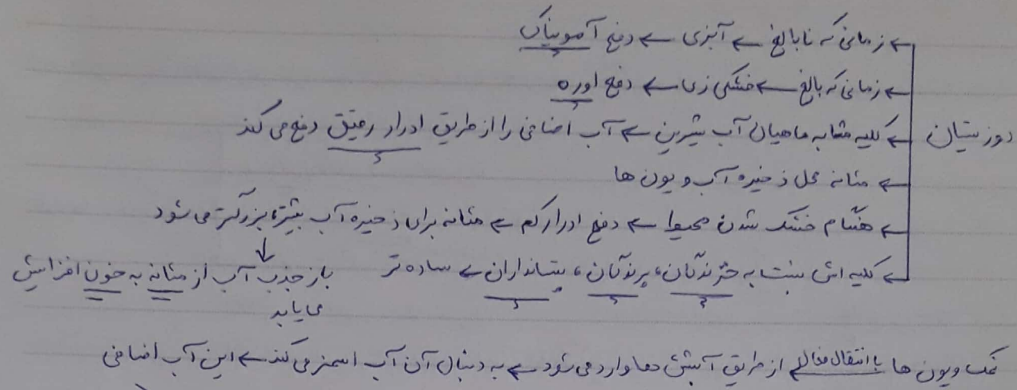 ← زمانی که نابالغ ← آبزی ← دفع آمونیاک
← زمانی که بالغ ← خشکی زی ← دفع اوره
دوزیستان ← کلیه مشابه ماهیان آب شیرین ← آب اضافی را از طریق ادرار رقیق دفع می کند
← مثانه محل ذخیره آب و یون ها
← هنگام خشک شدن محیط ← دفع ادرار کم ← مثانه برای ذخیره آب بیشتر، بزرگتر می شود
↓
← کلیه اش نسبت به خزندگان، پرندگان، پستانداران ← ساده تر
باز جذب آب از مثانه به خون افزایش
می یابد
نمک و یون ها با انتقال فعال از طریق آبشش ها وارد می شود ← به دنبال آن آب اسمز می کند ← این آب اضافی